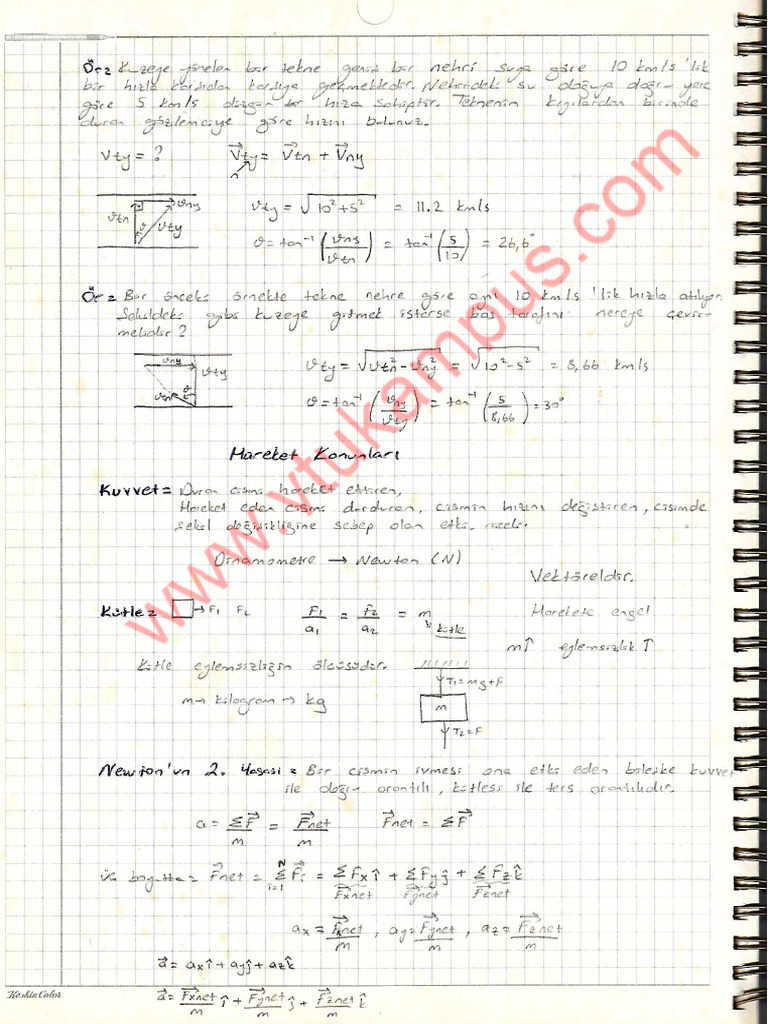 Ör= Kuzeye yönelen bir tekne geniş bir nehri suya göre 10 km/s 'lik
bir hızla karşıdan karşıya geçmektedir. Nehirdeki su doğuya doğru yere
göre 5 km/s düzgün bir hıza sahiptir. Teknenin kıyılardan birinde
duran gözlemciye göre hızını bulunuz.
Vty = ? V⃗ty = V⃗tn + V⃗ny
ϑtn ϑny ϑty
ϑty = √(10²+5²) = 11.2 km/s
θ = tan⁻¹(ϑny/ϑtn) = tan⁻¹(5/10) = 26,6°
Ör= Bir önceki örnekte tekne nehre göre aynı 10 km/s 'lik hızla atılıyor.
Şekildeki gibi kuzeye gitmek isterse baş tarafını nereye çevir-
melidir?
ϑny ϑty ϑtn
ϑty = √(ϑtn²-ϑny²) = √(10²-5²) = 8,66 km/s
θ = tan⁻¹(ϑny/ϑty) = tan⁻¹(5/8,66) = 30°
Hareket Kanunları
Kuvvet = Duran cismi hareket ettiren,
Hareket eden cismi durduran, cismin hızını değiştiren, cisimde
şekil değişikliğine sebep olan etki
Dinamometre → Newton (N)
Vektöreldir.
Kütle= F1 F2 F1/a1 = F2/a2 = m kütle Harekete engel
m↑ eylemsizlik ↑
Kütle eylemsizliğin ölçüsüdür.
T1=mg+F
m → kilogram → kg
m
T2=F
Newton'un 2. Yasası = Bir cismin ivmesi ona etki eden bileşke kuvvet
ile doğru orantılı, kütlesi ile ters orantılıdır.
a = ΣF⃗/m = F⃗net/m F⃗net = ΣF⃗
üç boyutta = F⃗net = Σ(i=1, N) F⃗i = ΣFx î + ΣFy ĵ + ΣFz k̂
F⃗xnet F⃗ynet F⃗znet
ax = F⃗xnet/m , ay = F⃗ynet/m , az = F⃗znet/m
a⃗ = ax î + ay ĵ + az k̂
a⃗ = F⃗xnet/m î + F⃗ynet/m ĵ + F⃗znet/m k̂
KeskinColor
www.ytukampus.com